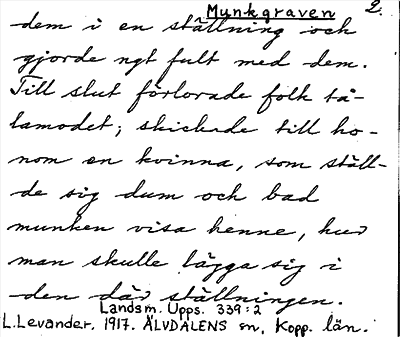 Munkgraven 2.
dem i en ställning och
gjorde ngt fult med dem.
Till slut förlorade folk tå-
lamodet; skickade till ho-
nom en kvinna, som ställ-
de sig dum och bad
munken visa henne, hur
man skulle lägga sig i
den där ställningen.
Landsm. Upps. 339:2
L. Levander. 1917. ÄLVDALENS sn, Kopp. län.